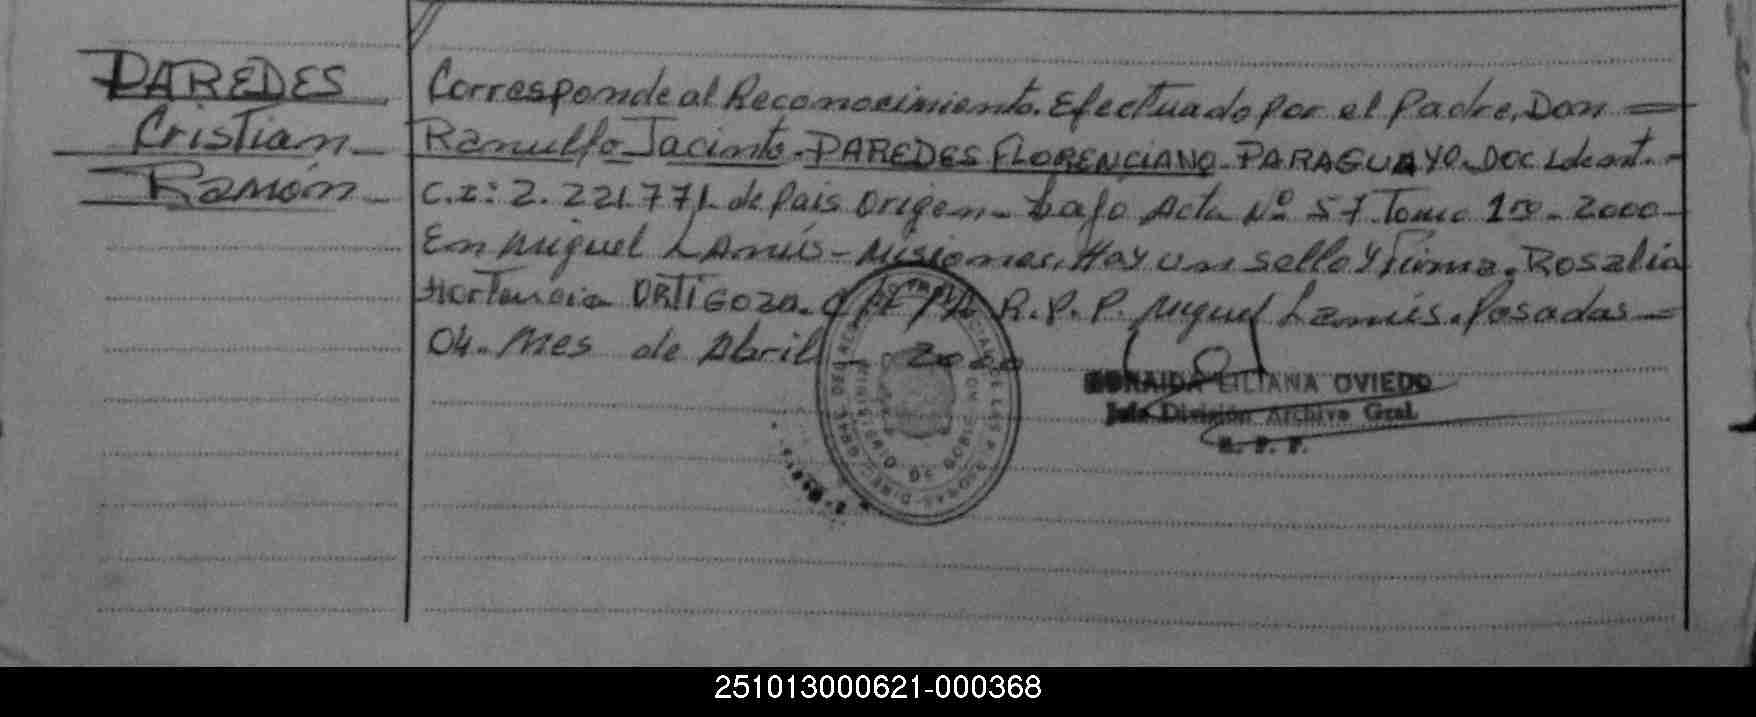 PAREDES
Cristian
Ramón
Corresponde al Reconocimiento. Efectuado por el Padre, Don =
Ranulfo Jacinto - PAREDES FLORENCIANO - PARAGUAYO. Doc. Ident. -
C.I: 2.221.771. de Pais Origen - bajo Acta Nº 57. Tomo 1ro - 2000 -
En Miguel Lanús - Misiones. Hay un sello y firma. Rosalia
Hortencia ORTIGOZA. R.P.P. Miguel Lanús. Posadas =
04. Mes de Abril - 2000
LILIANA OVIEDO
Jefe División Archivo Gral.
R. P. P.
MINISTERIO DE GOBIERNO
251013000621-000368